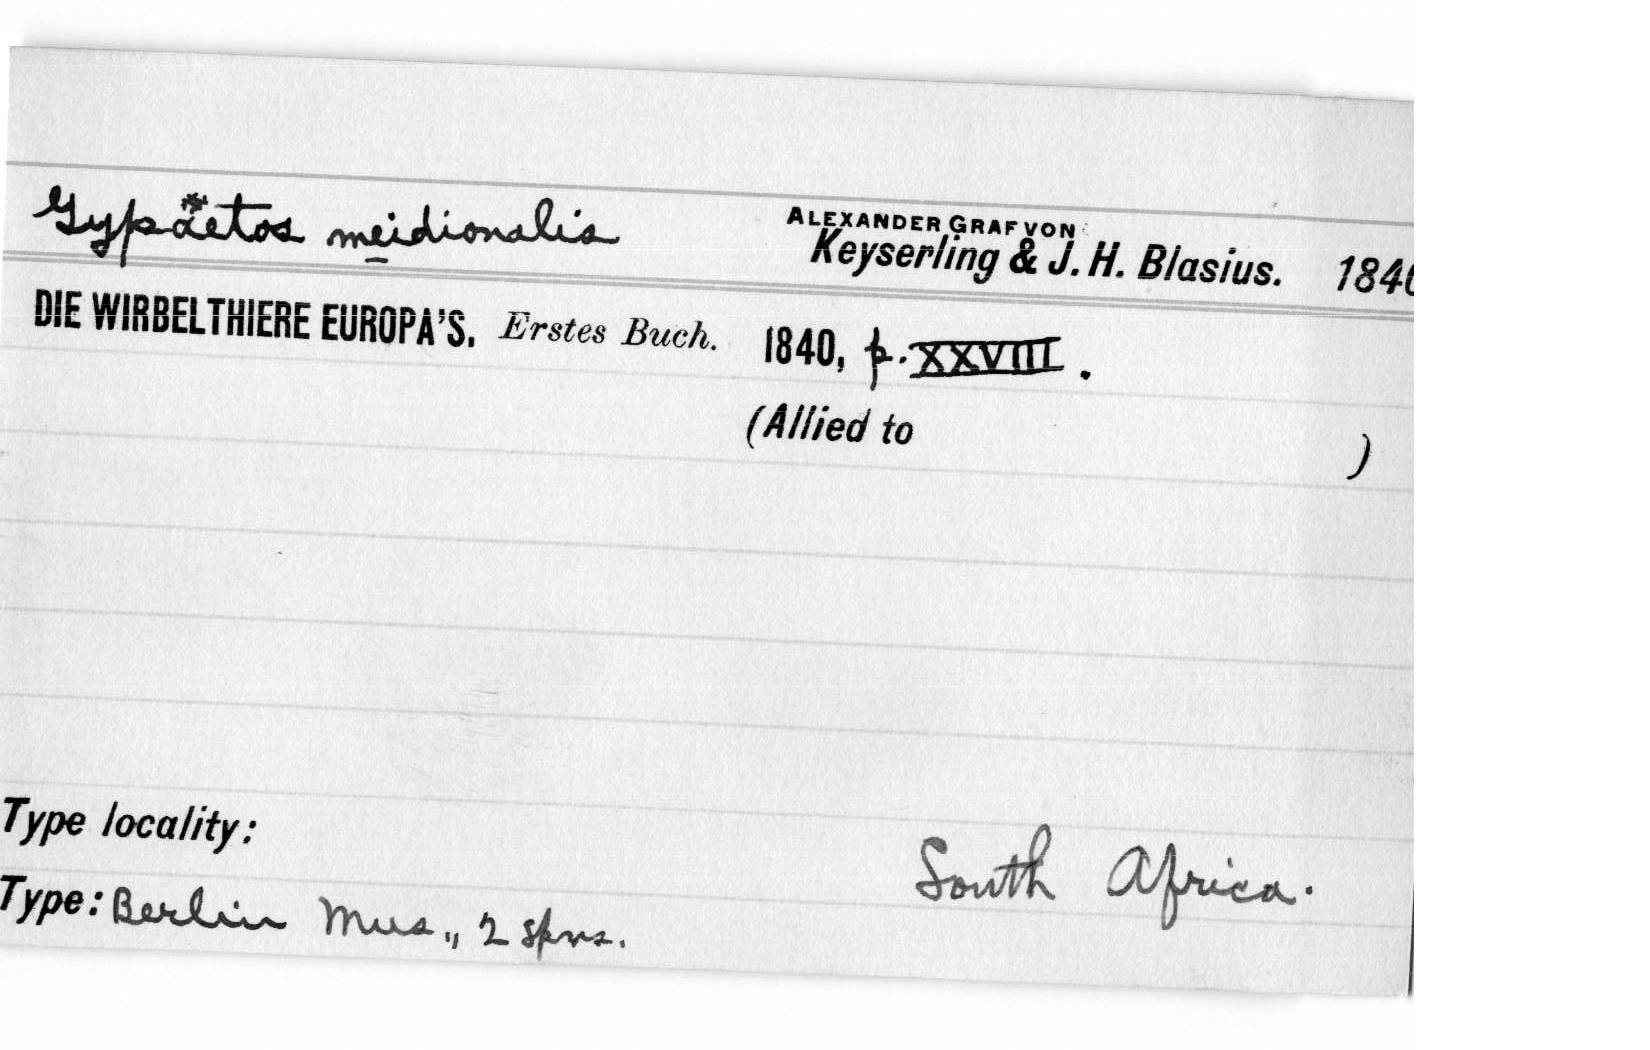 Gypäetos meidionalis
ALEXANDER GRAF VON
Keyserling & J. H. Blasius. 1840
DIE WIRBELTHIERE EUROPA'S. Erstes Buch. 1840, p. XXVIII.
(Allied to )
Type locality:
South Africa.
Type: Berlin Mus., 2 spns.